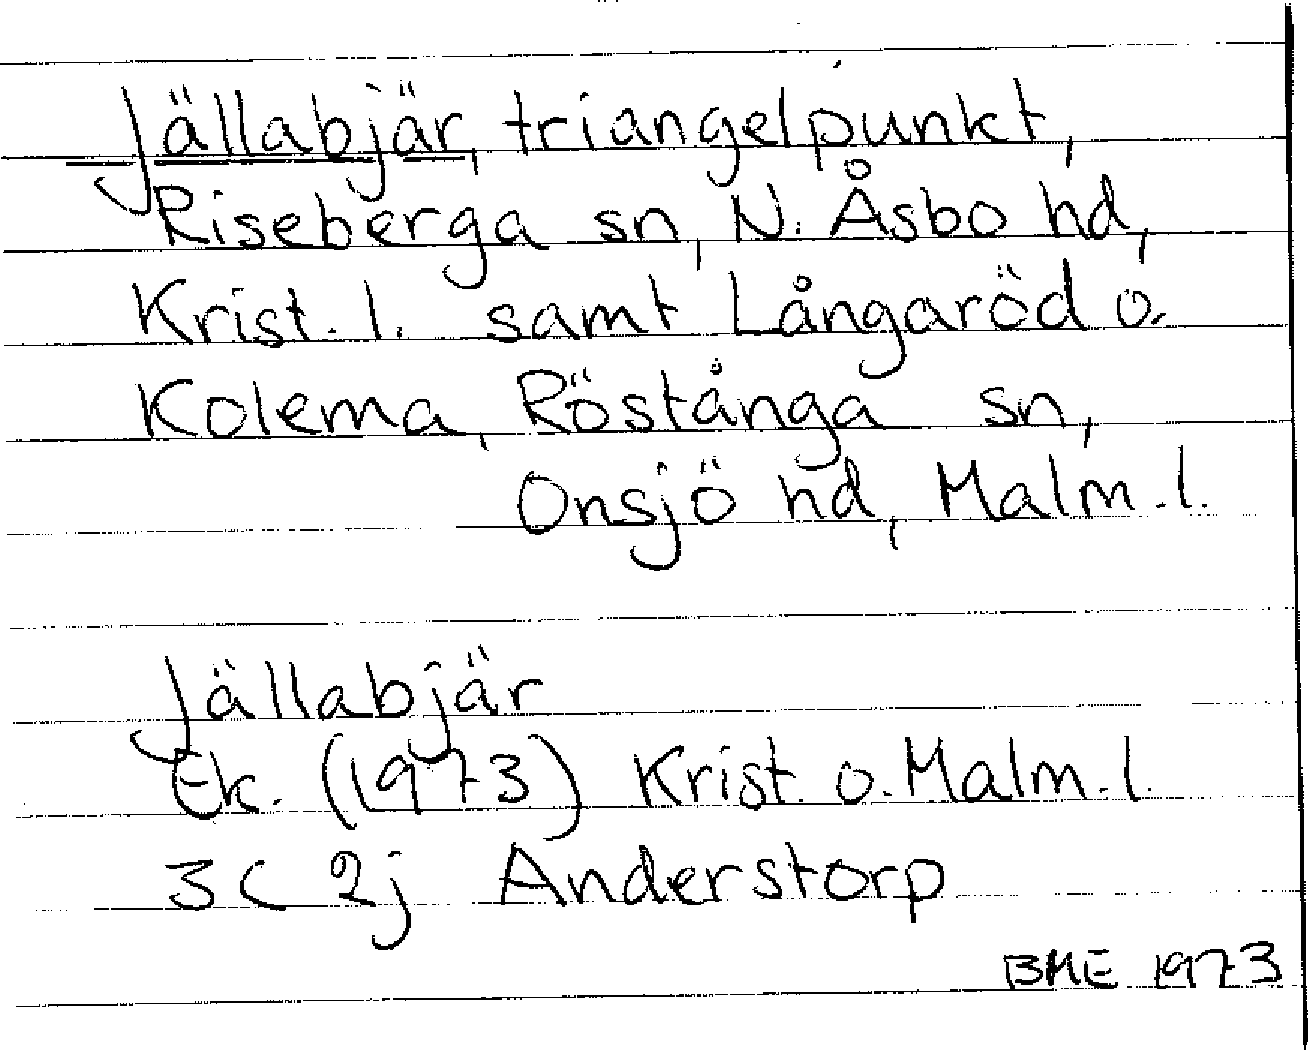 Jällabjär, triangelpunkt,
Riseberga sn, N. Åsbo hd,
Krist. l. samt Långaröd o.
Kolema, Röstånga sn,
Onsjö hd, Malm. l.
Jällabjär
Ek. (1973) Krist. o. Malm. l.
3C 2j Anderstorp
BME 1973